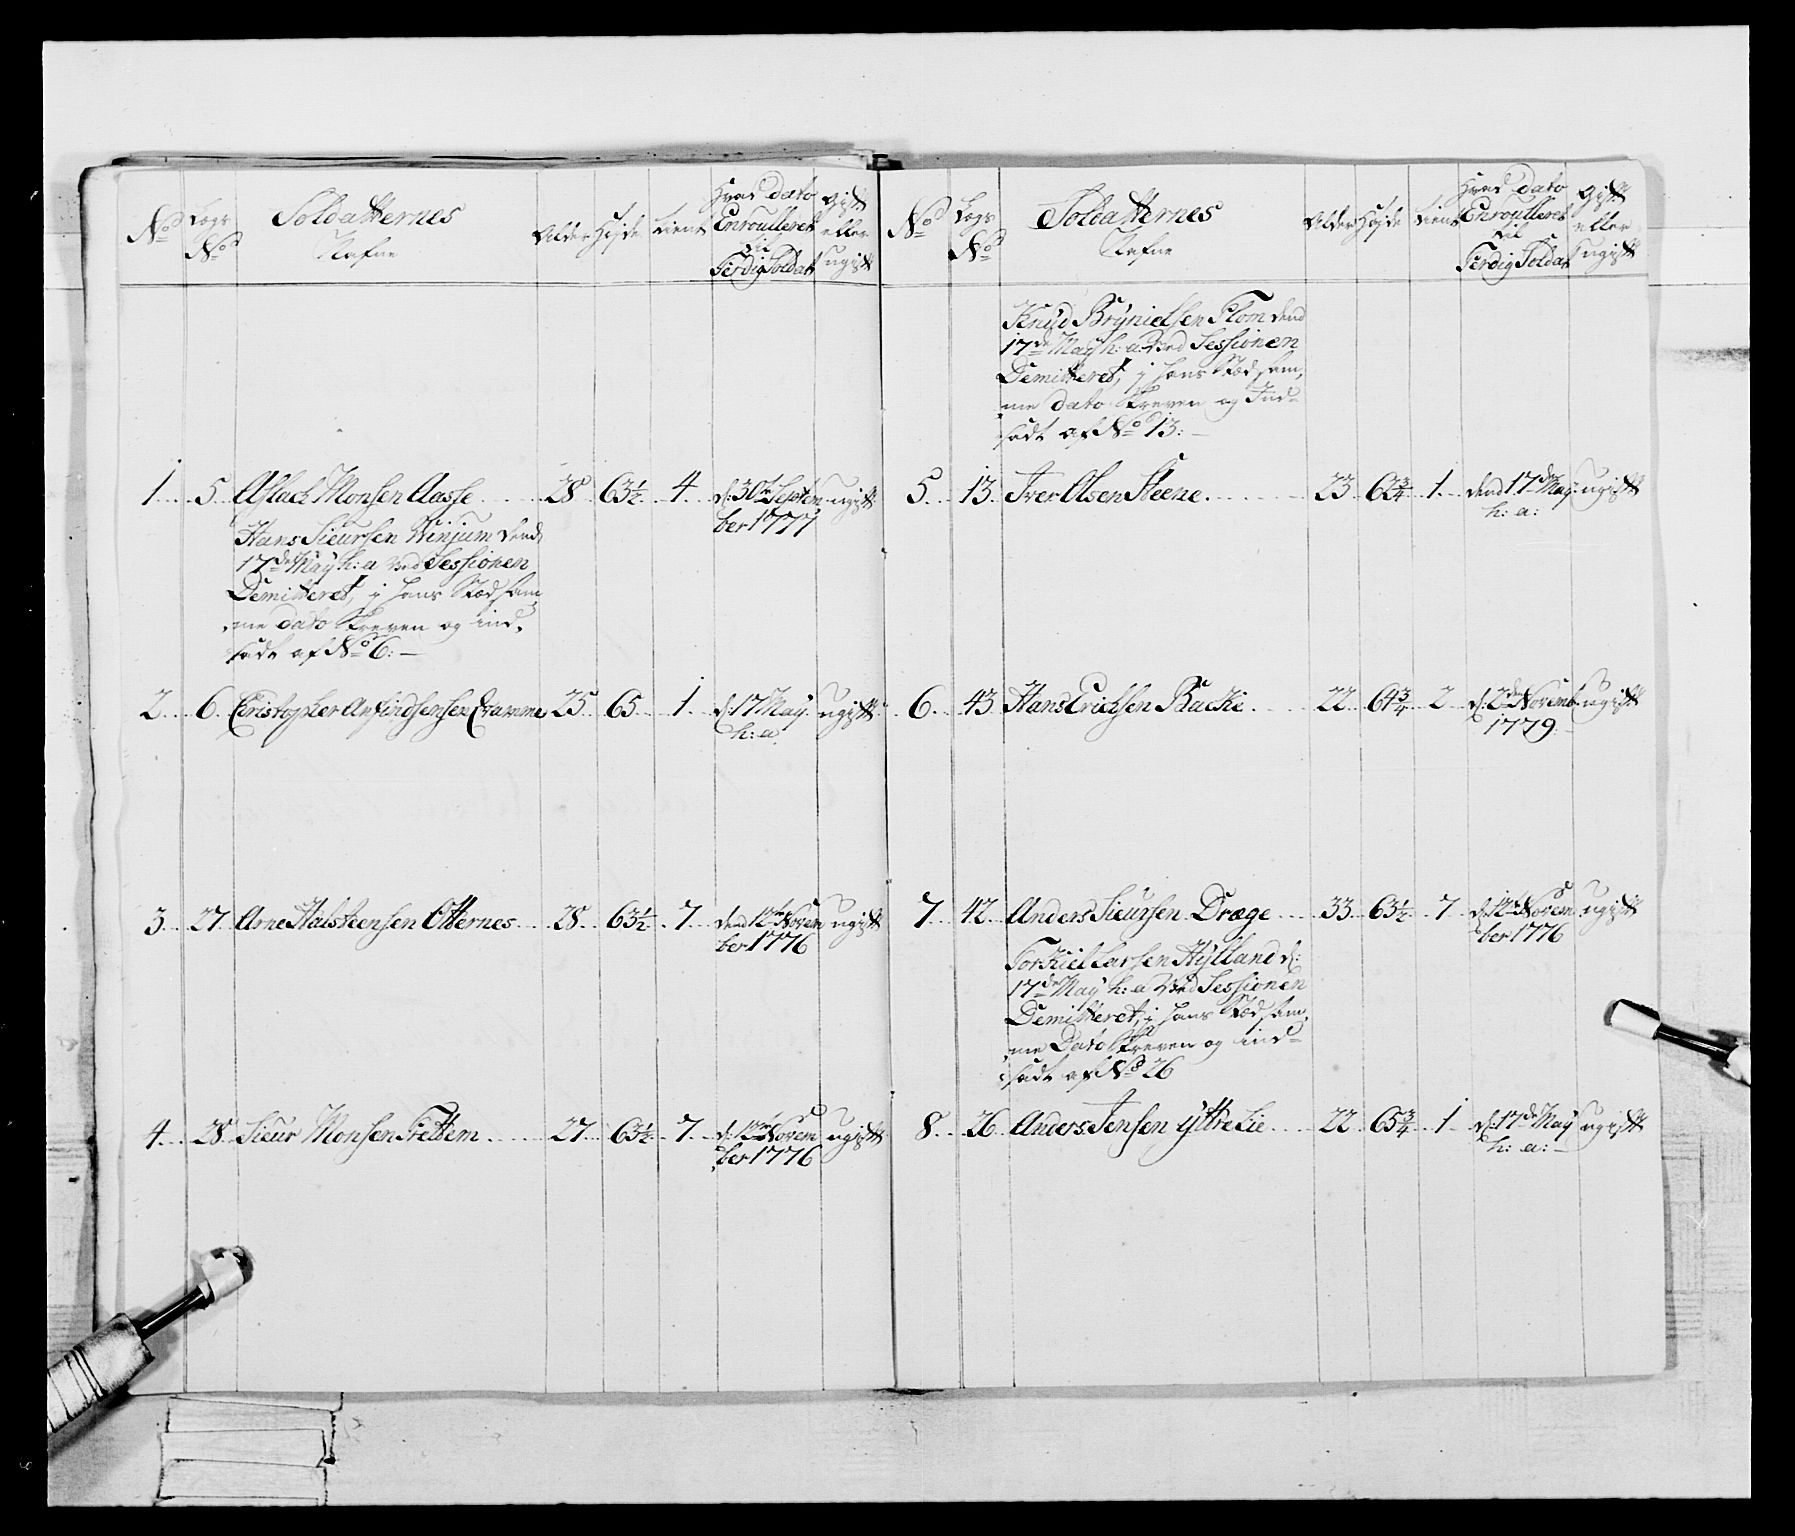 No Lægs No Soldatternes Nafne Alder Høyde tient Hvad dato Enroulleret til Ferdig Soldat gift eller ugift
1 5 Aslach Monsen Aasse 28 63½ 4 d: 30te Septem ugift
ber 1777
Hans Sieursen Winjum dend
17de May h: a ved Sessionen
Demitteret, i hans Stæd sam
me dato skreven og ind
sadt af No 6:
2 6 Christopher Anfindsensen Cramme 25 65 1 d: 17 May ugift
h: a
3 27 Arne Halsteensen Otternes 28 63½ 7 dend 12te Novem ugift
ber 1776
4 28 Sieur Monsen Frettem 27 63½ 7 d: 12te Novem ugift
ber 1776
No Lægs No Soldatternes Nafne Alder Høyde tient Hvad dato Enroulleret til Ferdig Soldat gift eller ugift
Knud Brynielsen Flom dend
17de May h: a ved Sessionen
Demitteret, i hans Stæd sam
me dato skreven og Ind
sadt af No 13:
5 13 Iver Olsen Steene 23 62¾ 1 dend 17de May ugift
h: a:
6 43 Hans Erichsen Backe 22 64¾ 2 d: 2den Novemb ugift
1779
7 42 Anders Sieursen Dræge 33 63½ 7 d: 12te Novem ugift
ber 1776
Torkiel Larsen Hylland d:
17de May h: a ved Sessionen
Demitteret, i hans Stæd sam
me Dato skreven og ind
sadt af No 26
8 26 Anders Jensen Yttre Lie 22 65¾ 1 d: 17de May ugift
h: a: